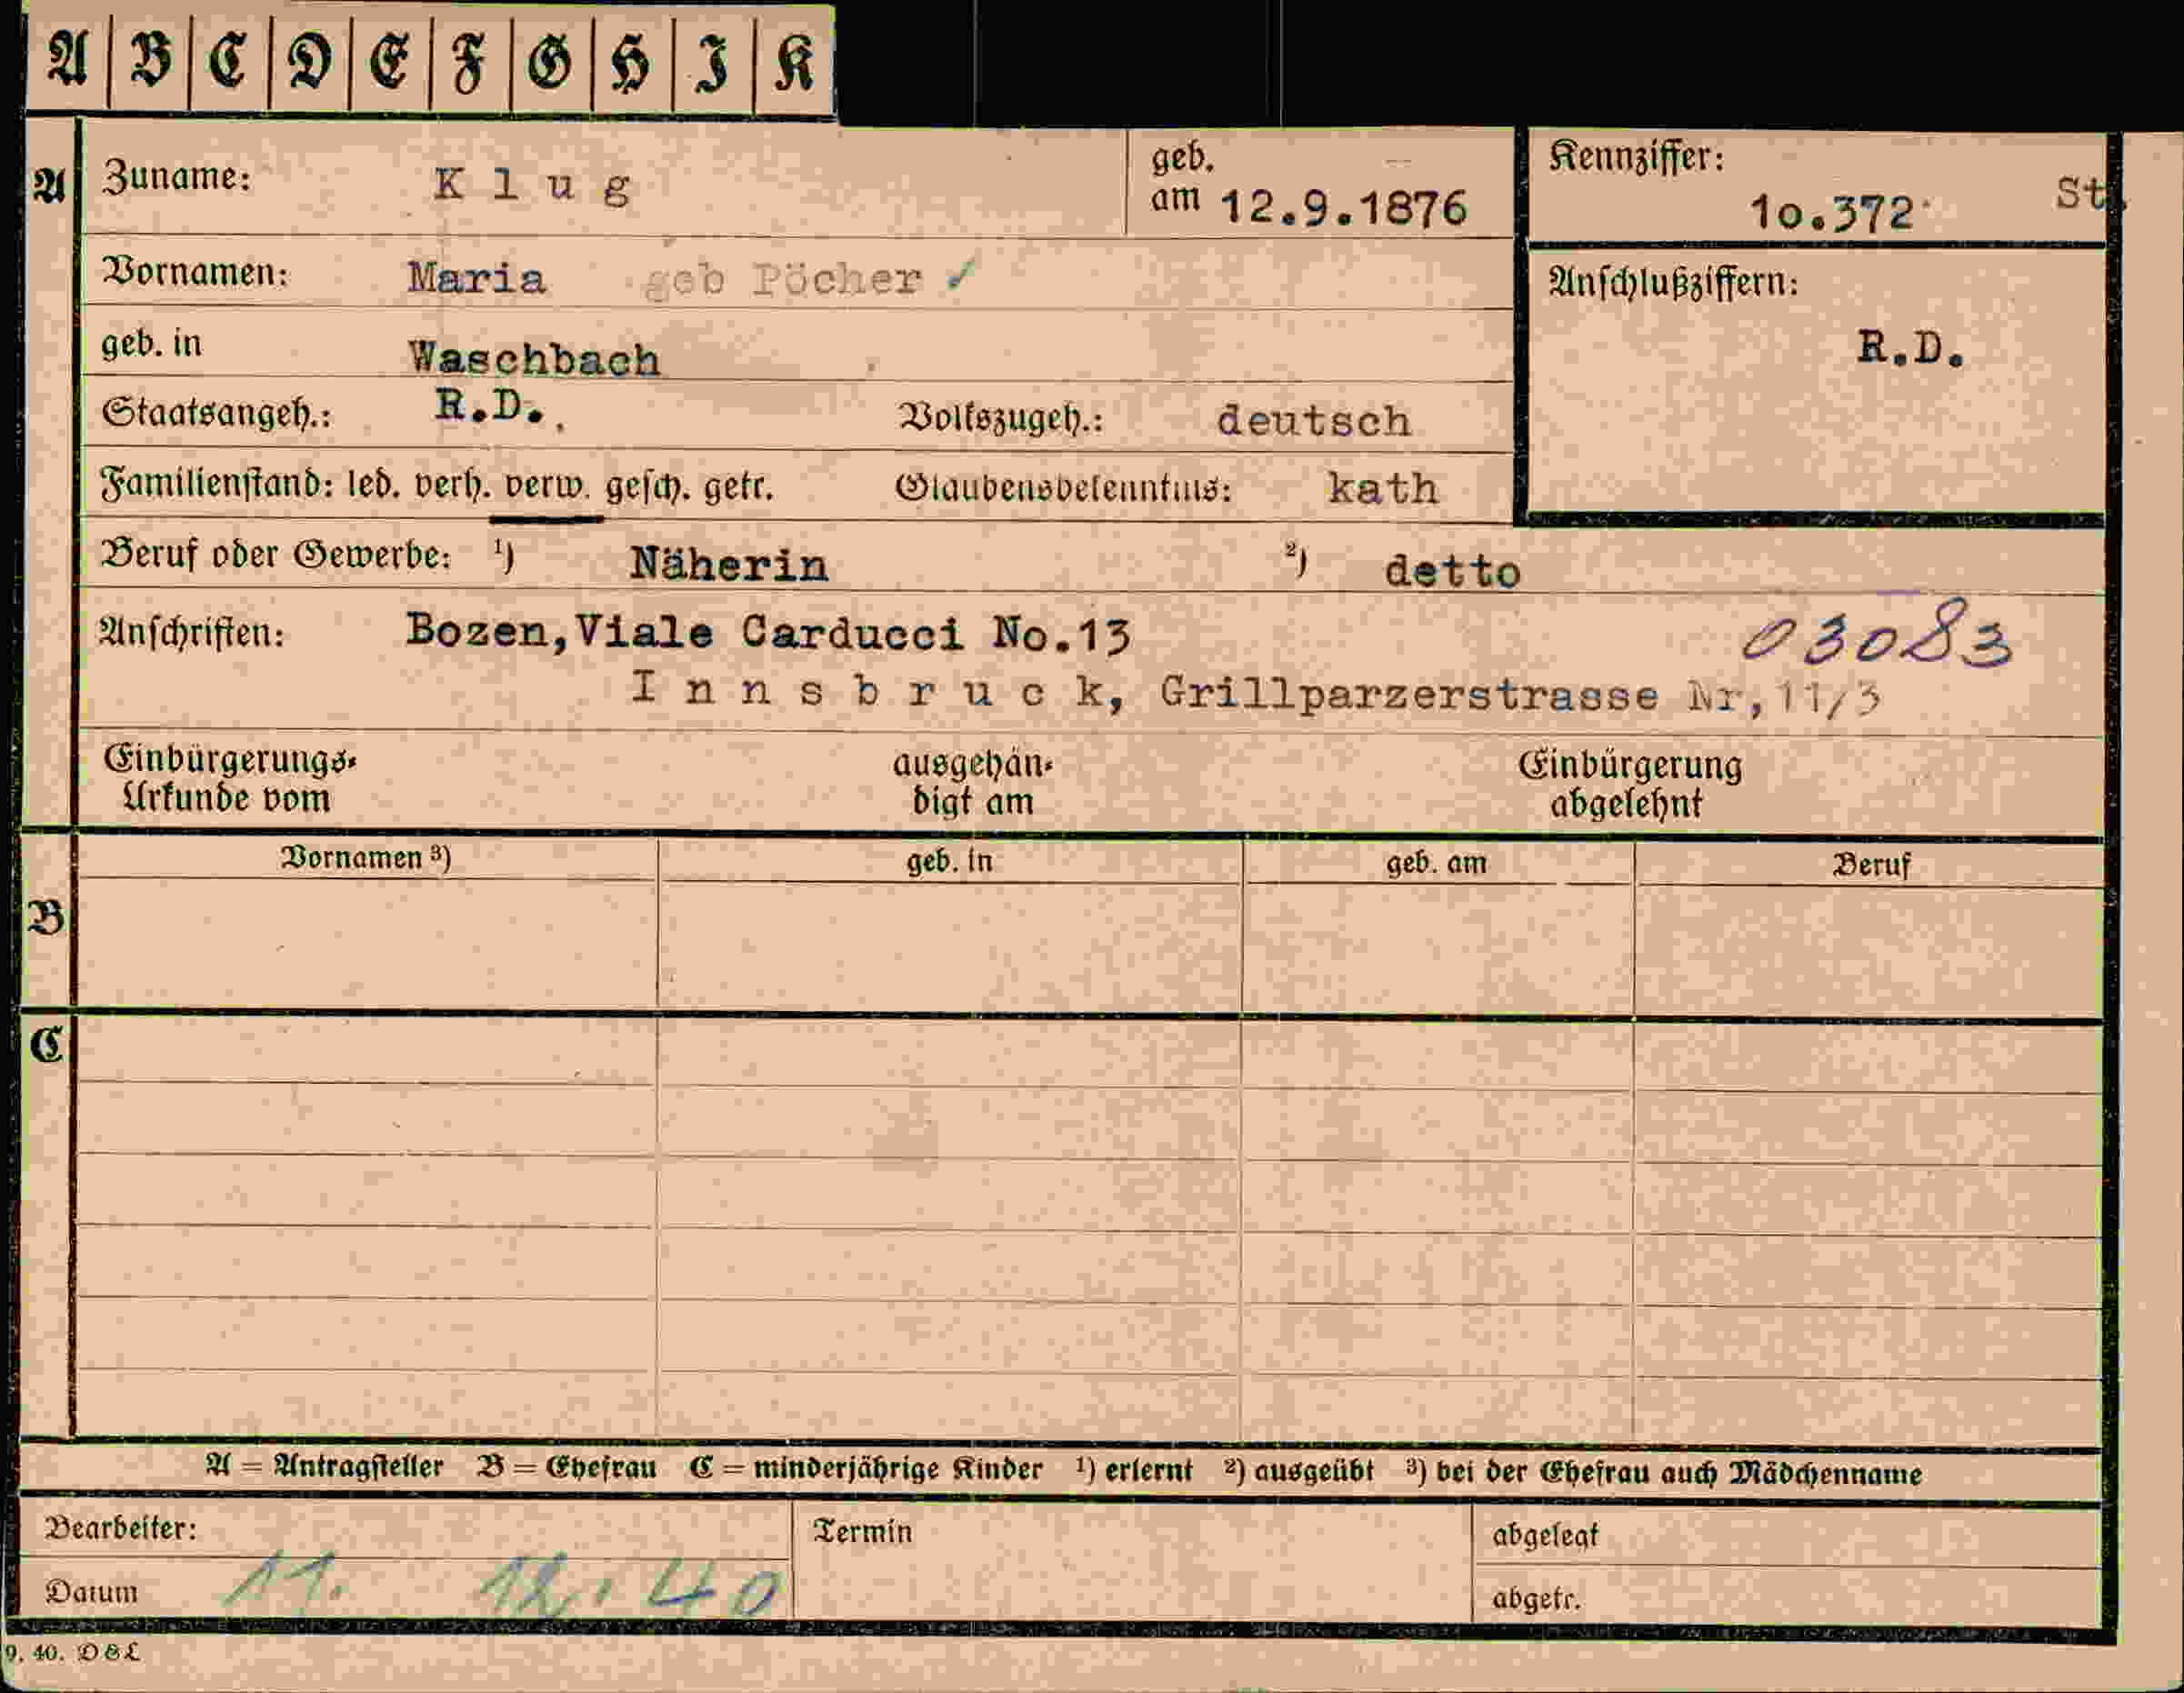 A B C D E F G H I K
A Zuname: Klug geb. am 12.9.1876 Kennziffer: 10.372 St.
Vornamen: Maria geb Pöcher ✓ Anschlußziffern:
geb. in Waschbach R.D.
Staatsangeh.: R.D. Volkszugeh.: deutsch
Familienstand: led. verh. verw. gesch. getr. Glaubensbekenntnis: kath
Beruf oder Gewerbe: ¹) Näherin ²) detto
Anschriften: Bozen,Viale Carducci No.13 03083
Innsbruck, Grillparzerstrasse Nr,11/3
Einbürgerungs- ausgehän- Einbürgerung
Urkunde vom digt am abgelehnt
Vornamen ³) geb. in geb. am Beruf
B
C
A = Antragsteller B = Ehefrau C = minderjährige Kinder ¹) erlernt ²) ausgeübt ³) bei der Ehefrau auch Mädchenname
Bearbeiter: Termin abgelegt
Datum 11. 12. 40 abgetr.
9. 40. D&L